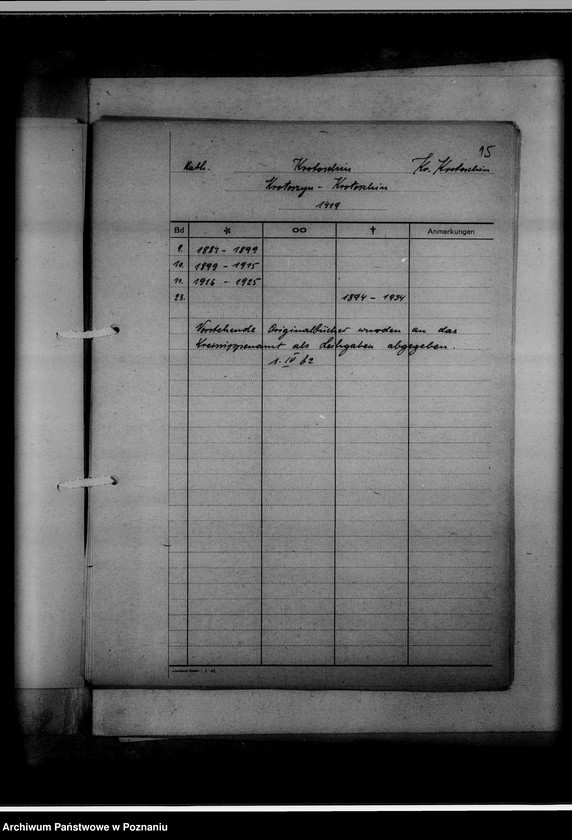 15
Kath. Krotoschin Kr. Krotoschin
Krotoszyn - Krotoschin
1419
Bd * ∞ † Anmerkungen
9. 1887 - 1899
10. 1899 - 1915
11. 1916 - 1925
23. 1894 - 1934
Vorstehende Originalbücher wurden an das
Kreissippenamt als Leihgaben abgegeben.
1. IV 62
Archiwum Państwowe w Poznaniu